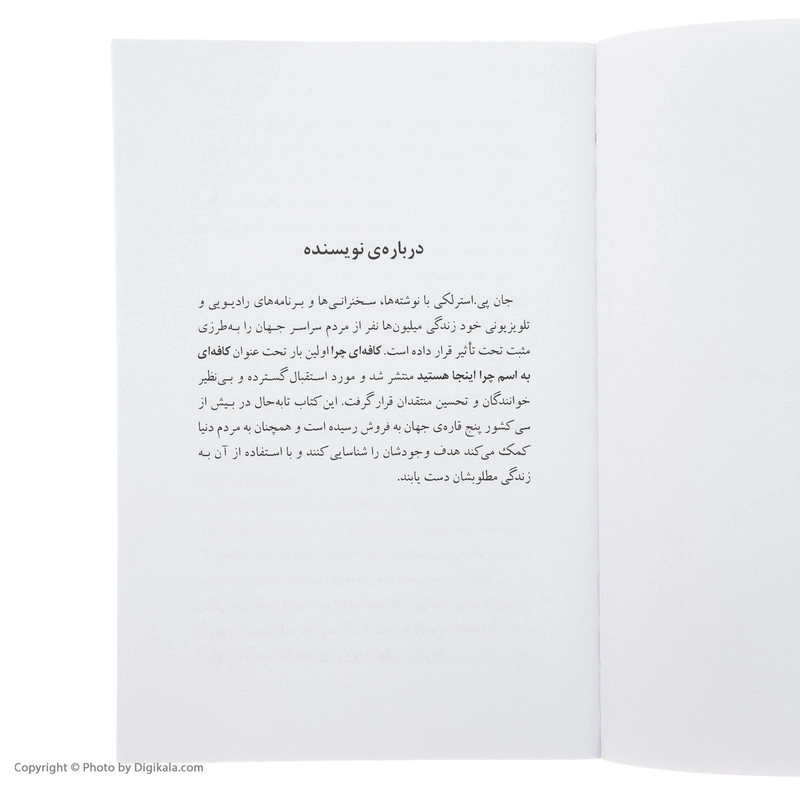 درباره‌ی نویسنده
جان پی.استرلکی با نوشته‌ها، سخنرانی‌ها و برنامه‌های رادیویی و
تلویزیونی خود زندگی میلیون‌ها نفر از مردم سراسر جهان را به‌طرزی
مثبت تحت تأثیر قرار داده است. کافه‌ای چرا اولین بار تحت عنوان کافه‌ای
به اسم چرا اینجا هستید منتشر شد و مورد استقبال گسترده و بی‌نظیر
خوانندگان و تحسین منتقدان قرار گرفت. این کتاب تابه‌حال در بیش از
سی کشور پنج قاره‌ی جهان به فروش رسیده است و همچنان به مردم دنیا
کمک می‌کند هدف وجودشان را شناسایی کنند و با استفاده از آن به
زندگی مطلوبشان دست یابند.
Copyright © Photo by Digikala.com